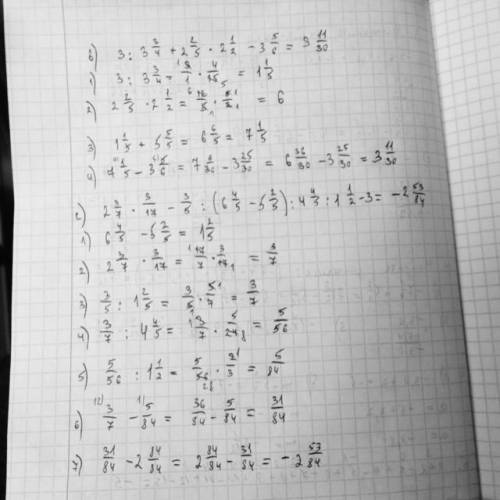 б) 3 : 3 3/4 + 2 2/5 · 2 1/2 - 3 5/6 = 3 11/30
1) 3 : 3 3/4 = 3/1 · 4/15 = 1 1/5
2) 2 2/5 · 2 1/2 = 12/5 · 5/2 = 6
3) 1 1/5 + 5 5/5 = 6 6/5 = 7 1/5
4) 7 1/5 - 3 5/6 = 7 6/30 - 3 25/30 = 6 36/30 - 3 25/30 = 3 11/30
2) 2 3/7 · 3/17 - 3/5 : (6 4/5 - 5 2/5) : 4 4/5 : 1 1/2 - 3 = -2 53/84
1) 6 4/5 - 5 2/5 = 1 2/5
2) 2 3/7 · 3/17 = 17/7 · 3/17 = 3/7
3) 3/5 : 1 2/5 = 3/5 · 5/7 = 3/7
4) 3/7 : 4 4/5 = 3/7 · 5/24 = 5/56
5) 5/56 : 1 1/2 = 5/56 · 2/3 = 5/84
6) 3/7 - 5/84 = 36/84 - 5/84 = 31/84
7) 31/84 - 2 84/84 = 2 84/84 - 31/84 = -2 53/84